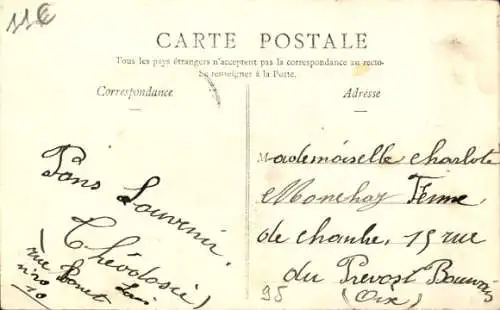 11€
CARTE POSTALE
Tous les pays étrangers n'acceptent pas la correspondance au recto-
Se renseigner à la Poste.
Correspondance
Adresse
Bons Souvenir
Théodosie
rue
10
Mademoiselle Charlote
Monchoy Femme
de chambre, 15 rue
du Prevost Beauvais
(Oise)
95